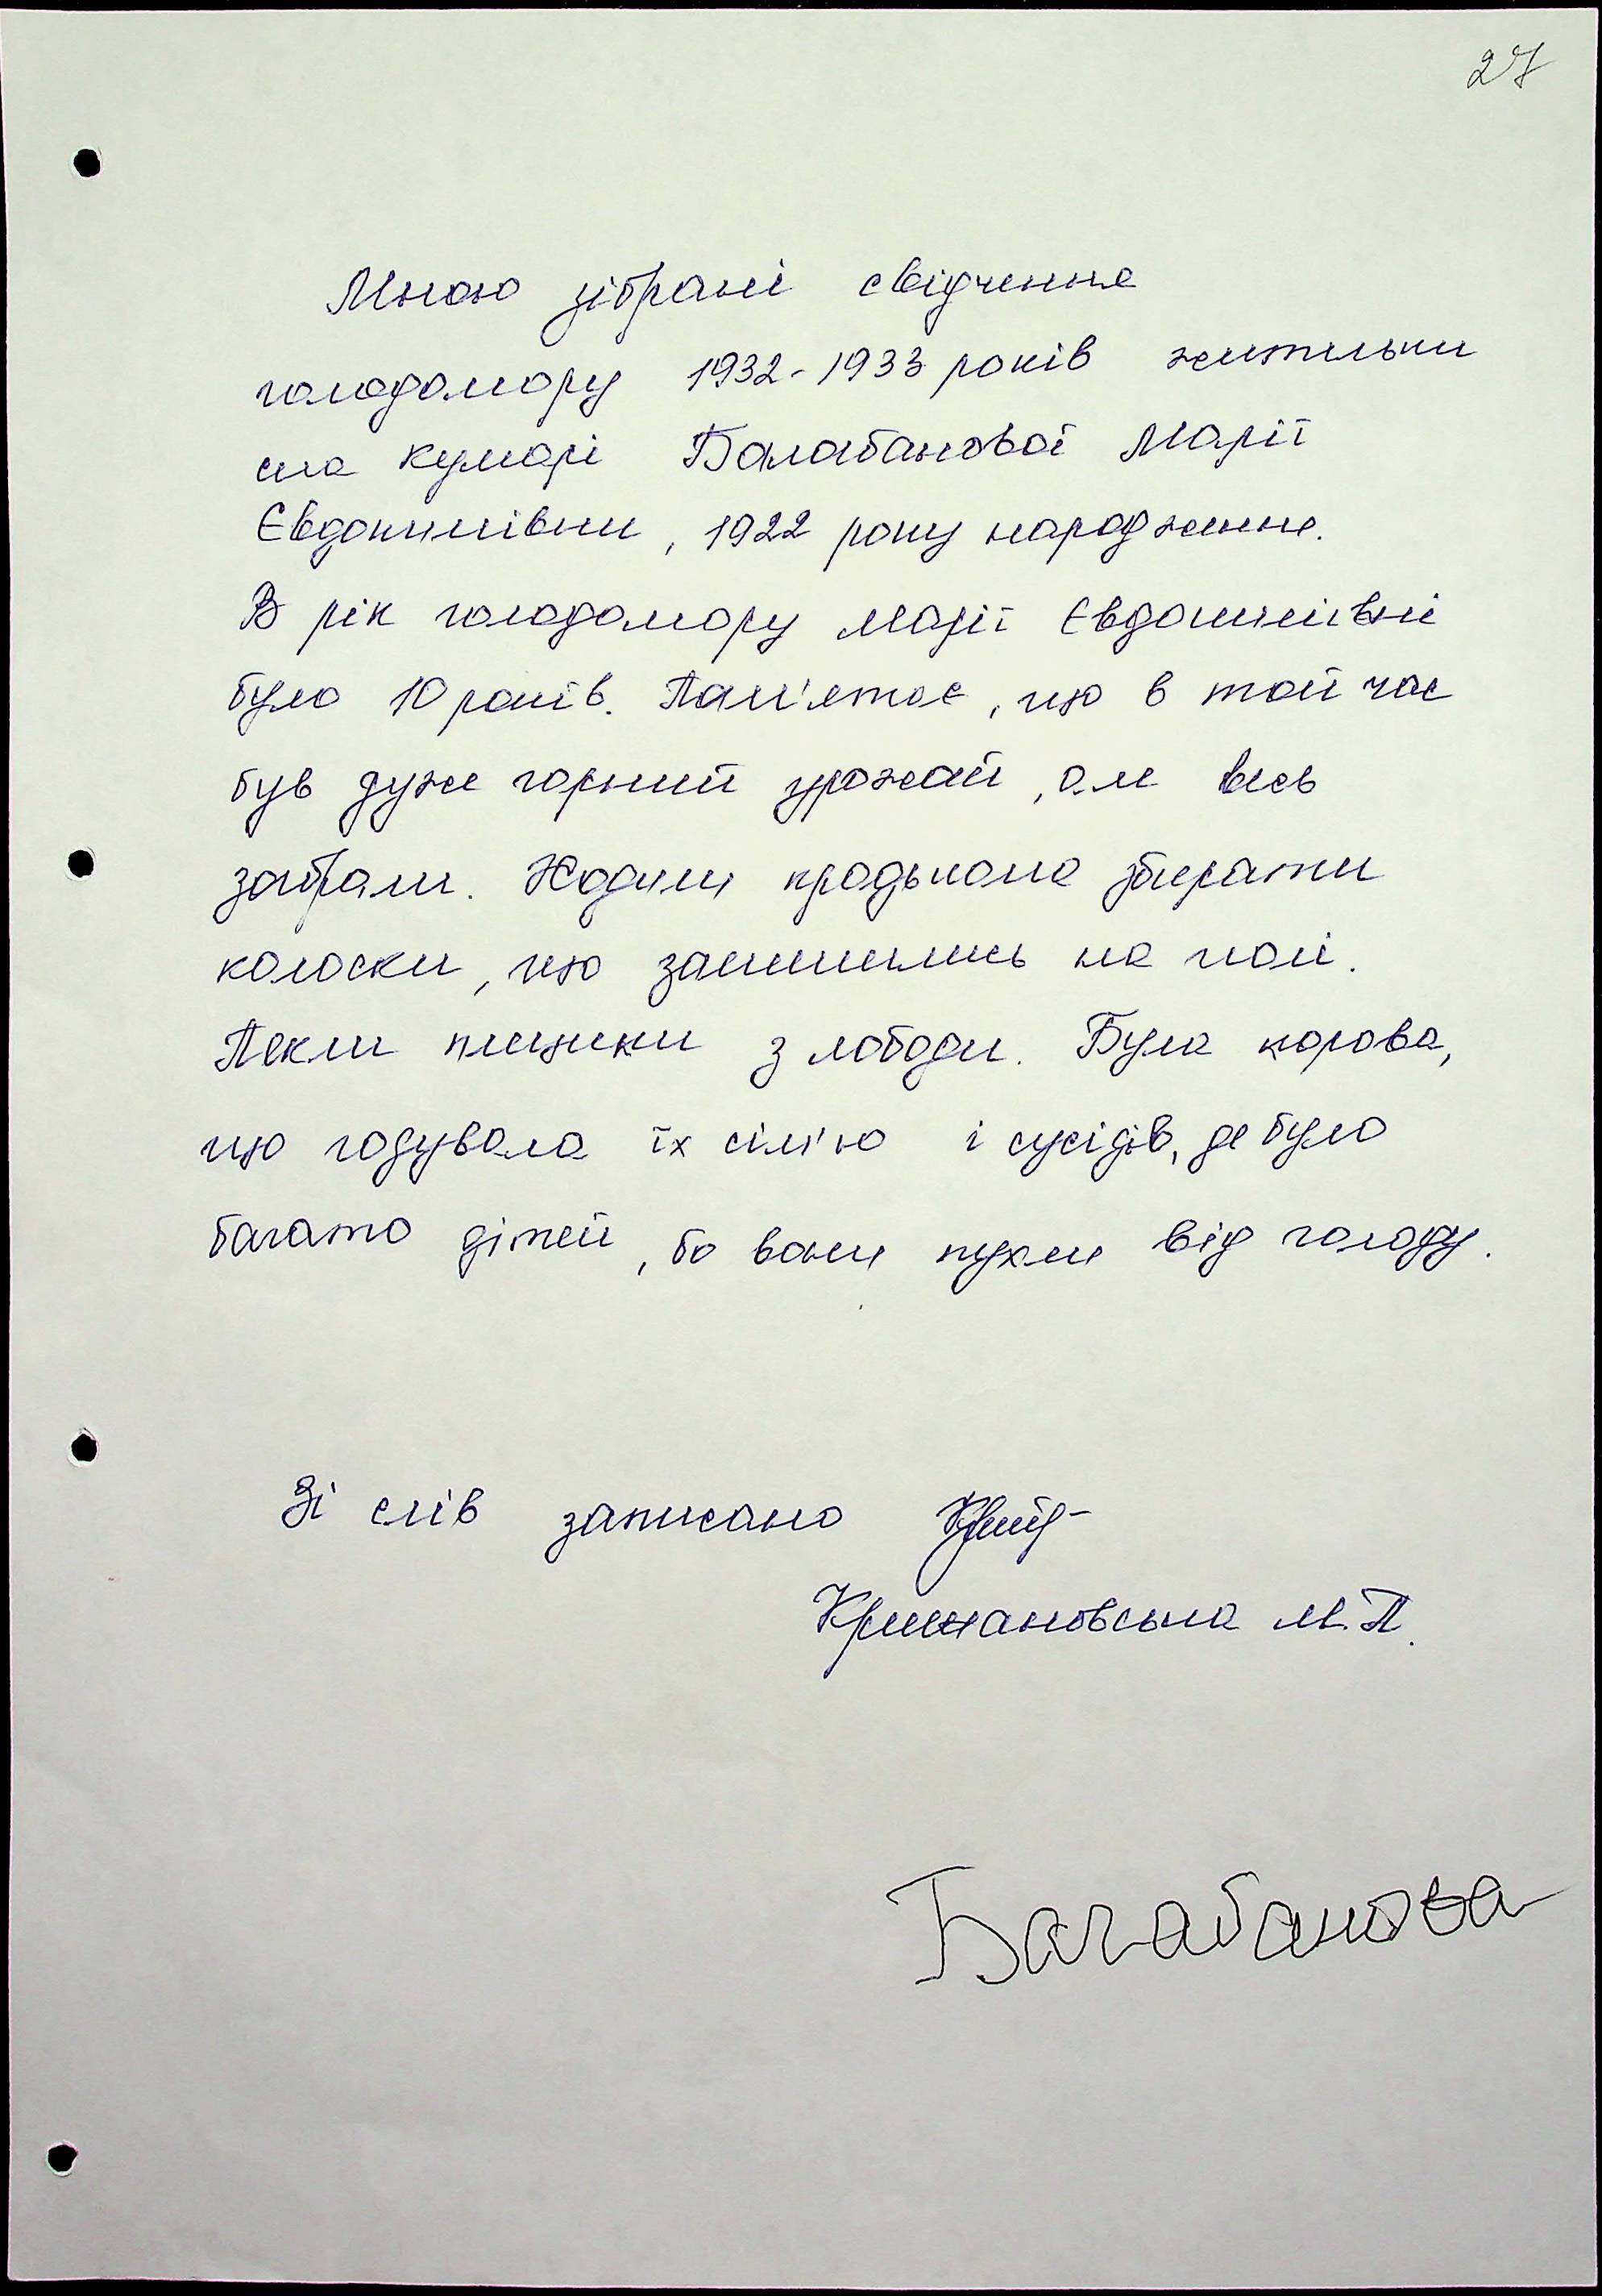 27
Мною зібрані свідчення
голодомору 1932-1933 років жительки
с-ла Куморі Балабанової Марії
Євдокимівни, 1922 року народження.
В рік голодомору Марії Євдокимівні
було 10 років. Пам'ятає, що в той час
був дуже гарний урожай, але весь
забрали. Ходили крадькома збирати
колоски, що залишились на полі.
Пекли плицики з лободи. Була корова,
що годувала їх сім'ю і сусідів, де було
багато дітей, бо вони пухли від голоду.
Зі слів записано
Крижановська М.П.
Балабанова